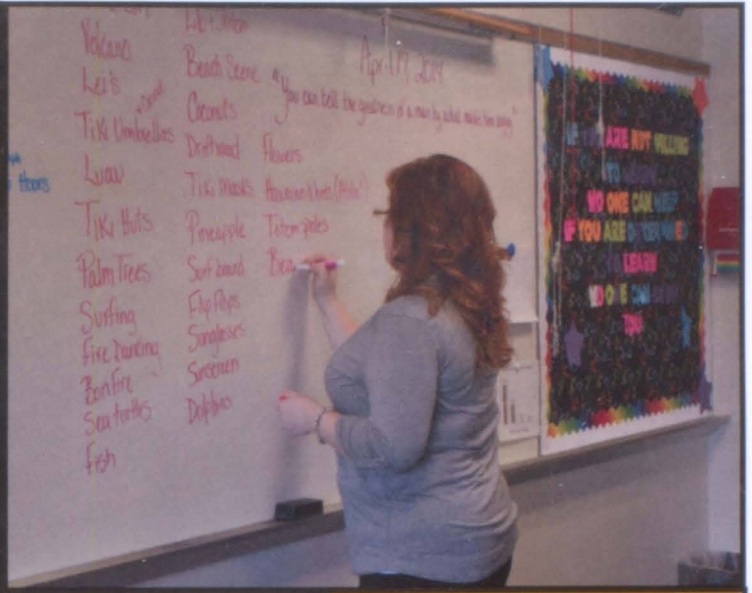 Volcano
Lei's
Tiki Umbrellas
Luau
Tiki Huts
Palm Trees
Surfing
Fire Dancing
Bonfire
Sea turtles
Fish
Beach Scene
Coconuts
Driftwood
Tiki Masks
Pineapple
Surf board
Flip Flops
Sunglasses
Sunscreen
Dolphins
April
"You can tell the greatness of a man by what makes him angry"
Flowers
Hawaiian
Totem poles
Bea
IF YOU ARE NOT WILLING
TO LEARN
NO ONE CAN HELP
IF YOU ARE DETERMINED
TO LEARN
NO ONE CAN
YOU